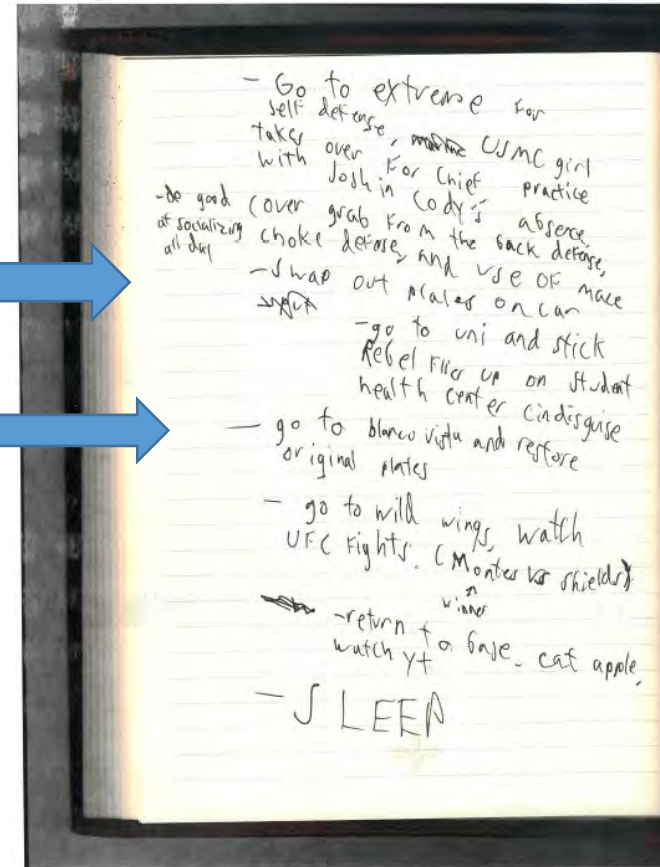 - Go to extreme for
self defense, USMC girl
takes over for Chief practice
with Josh in Cody's absence,
(over grab from the back defense,
choke defense, and use of mace
-be good
at socializing
all day
- Swap out plates on car
-go to uni and stick
Rebel flier up on student
health center (indisguise
- go to blanco vista and restore
original plates
- go to wild wings, watch
UFC fights. (Montes vs shields)
winner
-return to base. eat apple,
watch yt
- SLEEP